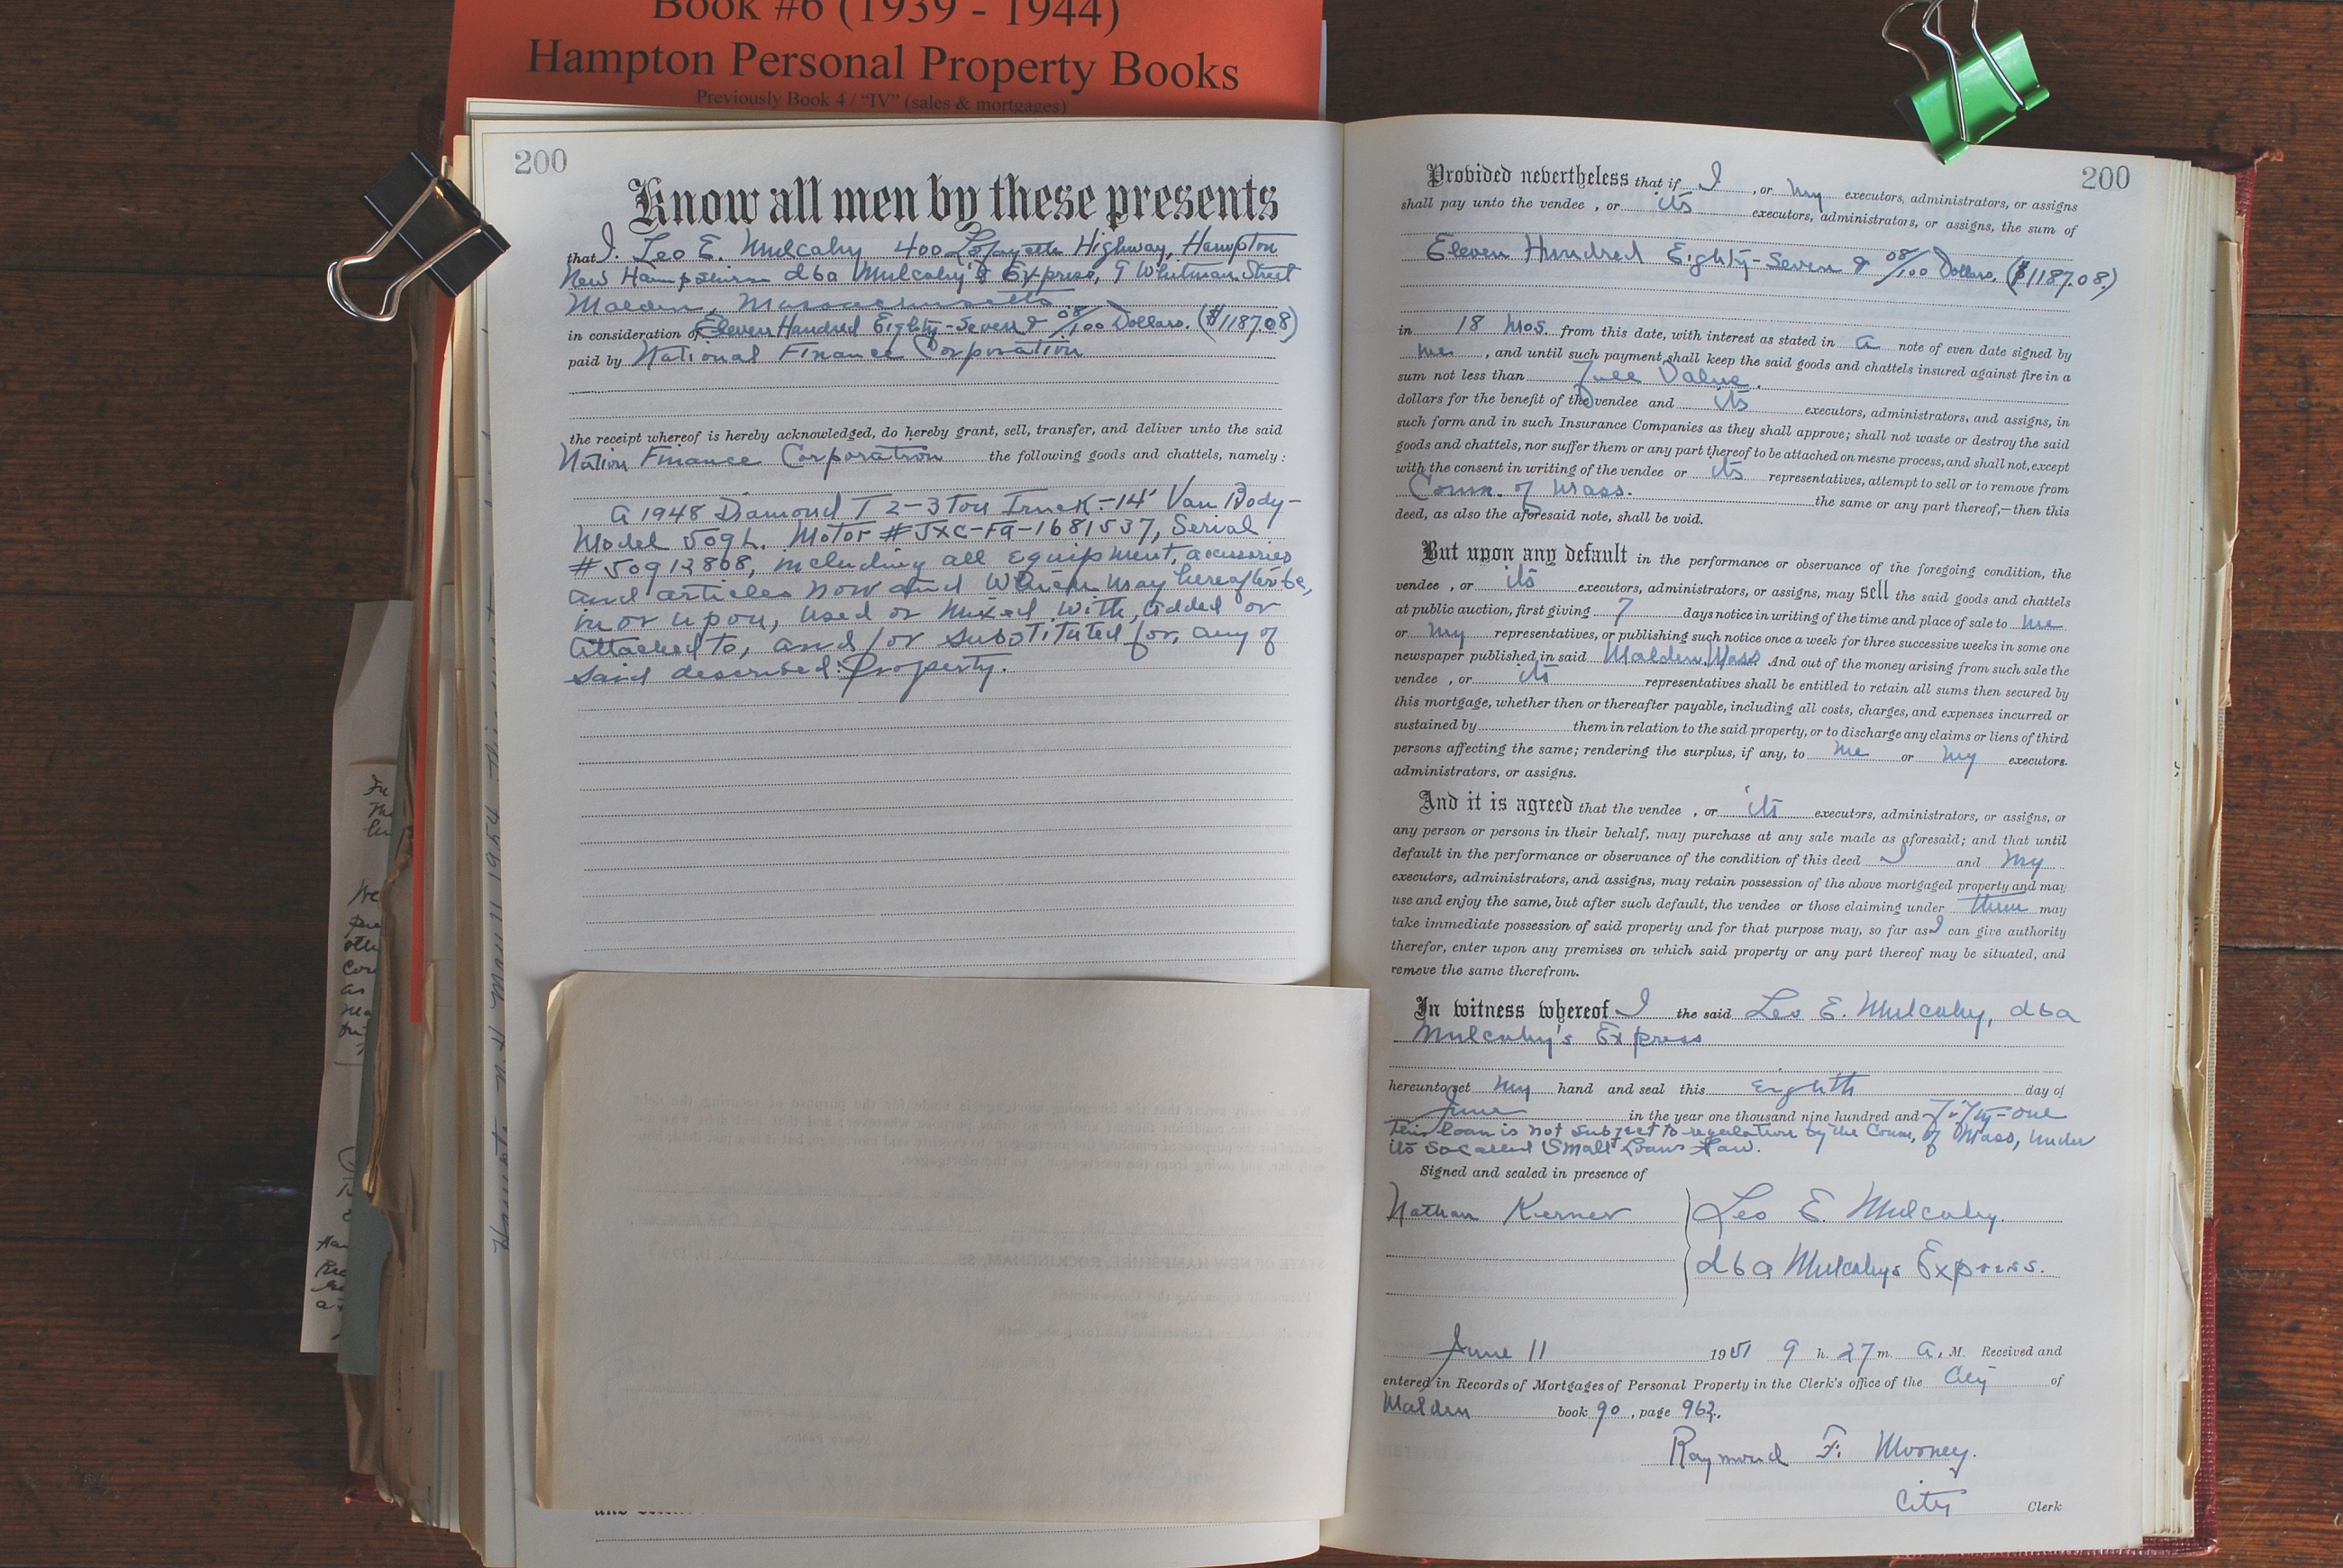 Book #6 (1939 - 1944)
Hampton Personal Property Books
Previously Book 4 / "IV" (sales & mortgages)
200
Know all men by these presents
that I. Leo E. Mulcahy 400 Lafayette Highway, Hampton
New Hampshire dba Mulcahy's Express, 9 Whitman Street
Malden, Massachusetts
in consideration of Eleven Hundred Eighty-Seven & 08/100 Dollars. ($1187.08)
paid by National Finance Corporation
the receipt whereof is hereby acknowledged, do hereby grant, sell, transfer, and deliver unto the said
Nation Finance Corporation the following goods and chattels, namely:
A 1948 Diamond T 2-3 Ton Truck-14' Van Body-
Model 509L. Motor #JXC-FA-1681537, Serial
#50912868, including all equipment, accessories
and articles now and which may hereafter be,
in or upon, used or mixed with, added or
attached to, and/or substituted for, any of
said described property.
200
Provided nevertheless that if I, or my executors, administrators, or assigns
shall pay unto the vendee , or its executors, administrators, or assigns, the sum of
Eleven Hundred Eighty-Seven & 08/100 Dollars. ($1187.08)
in 18 mos. from this date, with interest as stated in a note of even date signed by
me, and until such payment shall keep the said goods and chattels insured against fire in a
sum not less than Full Value.
dollars for the benefit of the vendee and its executors, administrators, and assigns, in
such form and in such Insurance Companies as they shall approve; shall not waste or destroy the said
goods and chattels, nor suffer them or any part thereof to be attached on mesne process, and shall not, except
with the consent in writing of the vendee or its representatives, attempt to sell or to remove from
Comm. of Mass. the same or any part thereof,—then this
deed, as also the aforesaid note, shall be void.
But upon any default in the performance or observance of the foregoing condition, the
vendee , or its executors, administrators, or assigns, may sell the said goods and chattels
at public auction, first giving 7 days notice in writing of the time and place of sale to me
or my representatives, or publishing such notice once a week for three successive weeks in some one
newspaper published in said Malden, Mass And out of the money arising from such sale the
vendee , or its representatives shall be entitled to retain all sums then secured by
this mortgage, whether then or thereafter payable, including all costs, charges, and expenses incurred or
sustained by them in relation to the said property, or to discharge any claims or liens of third
persons affecting the same; rendering the surplus, if any, to me or my executors.
administrators, or assigns.
And it is agreed that the vendee , or its executors, administrators, or assigns, or
any person or persons in their behalf, may purchase at any sale made as aforesaid; and that until
default in the performance or observance of the condition of this deed I and my
executors, administrators, and assigns, may retain possession of the above mortgaged property and may
use and enjoy the same, but after such default, the vendee or those claiming under them may
take immediate possession of said property and for that purpose may, so far as I can give authority
therefor, enter upon any premises on which said property or any part thereof may be situated, and
remove the same therefrom.
In witness whereof I the said Leo E. Mulcahy, dba
Mulcahy's Express
hereunto set my hand and seal this eighth day of
June in the year one thousand nine hundred and Fifty-one
This loan is not subject to regulation by the Comm, of Mass, under
its so called Small Loans Law.
Signed and sealed in presence of
Nathan Kerner
Leo E. Mulcahy.
dba Mulcahys Express.
June 11 1951 9 h. 27 m. A. M. Received and
entered in Records of Mortgages of Personal Property in the Clerk's office of the City of
Malden book 90, page 962.
Raymond F. Mooney.
City Clerk